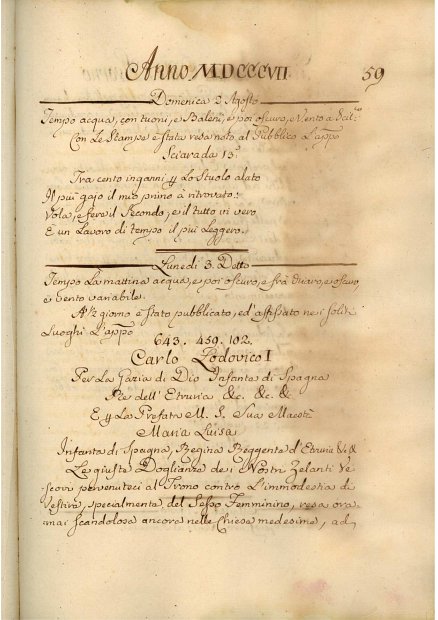 Anno MDCCCVII 59
Domenica 2 Agosto
Tempo acqua, con tuoni, e Baleni, e poi oscuro, e Vento a Scil:co
Con Le Stampe è stata resa noto al Pubblico L'appo
Sciarada 15a
Tra cento inganni y Lo Stuolo alato
Il più gajo il mio primo à ritrovato:
Vola, e fere il Secondo; e il tutto in vero
È un Lavoro di tempo il più Leggero.
Lunedì 3. Detto
Tempo La mattina acqua, e poi oscuro, e frà chiaro, e oscuro,
e vento variabile.
A ½ giorno è stato pubblicato, ed' affissato nei soliti
Luoghi L'appo
643. 459. 102.
Carlo Lodovico I
Per La Grazia di Dio Infante di Spagna
Re dell' Etruria &c. &c. &
E y La Prefata M. S. Sua Maestà
Maria Luisa
Infanta di Spagna, Regina Reggente d'Etruria &c &
Le giuste Doglianze dei Nostri Zelanti Ve
scovi pervenuteci al Trono contro L'immodestia di
Vestire, specialmente del Sesso Femminino, resa ora-
mai Scandolosa ancora nelle Chiese medesime, ad,